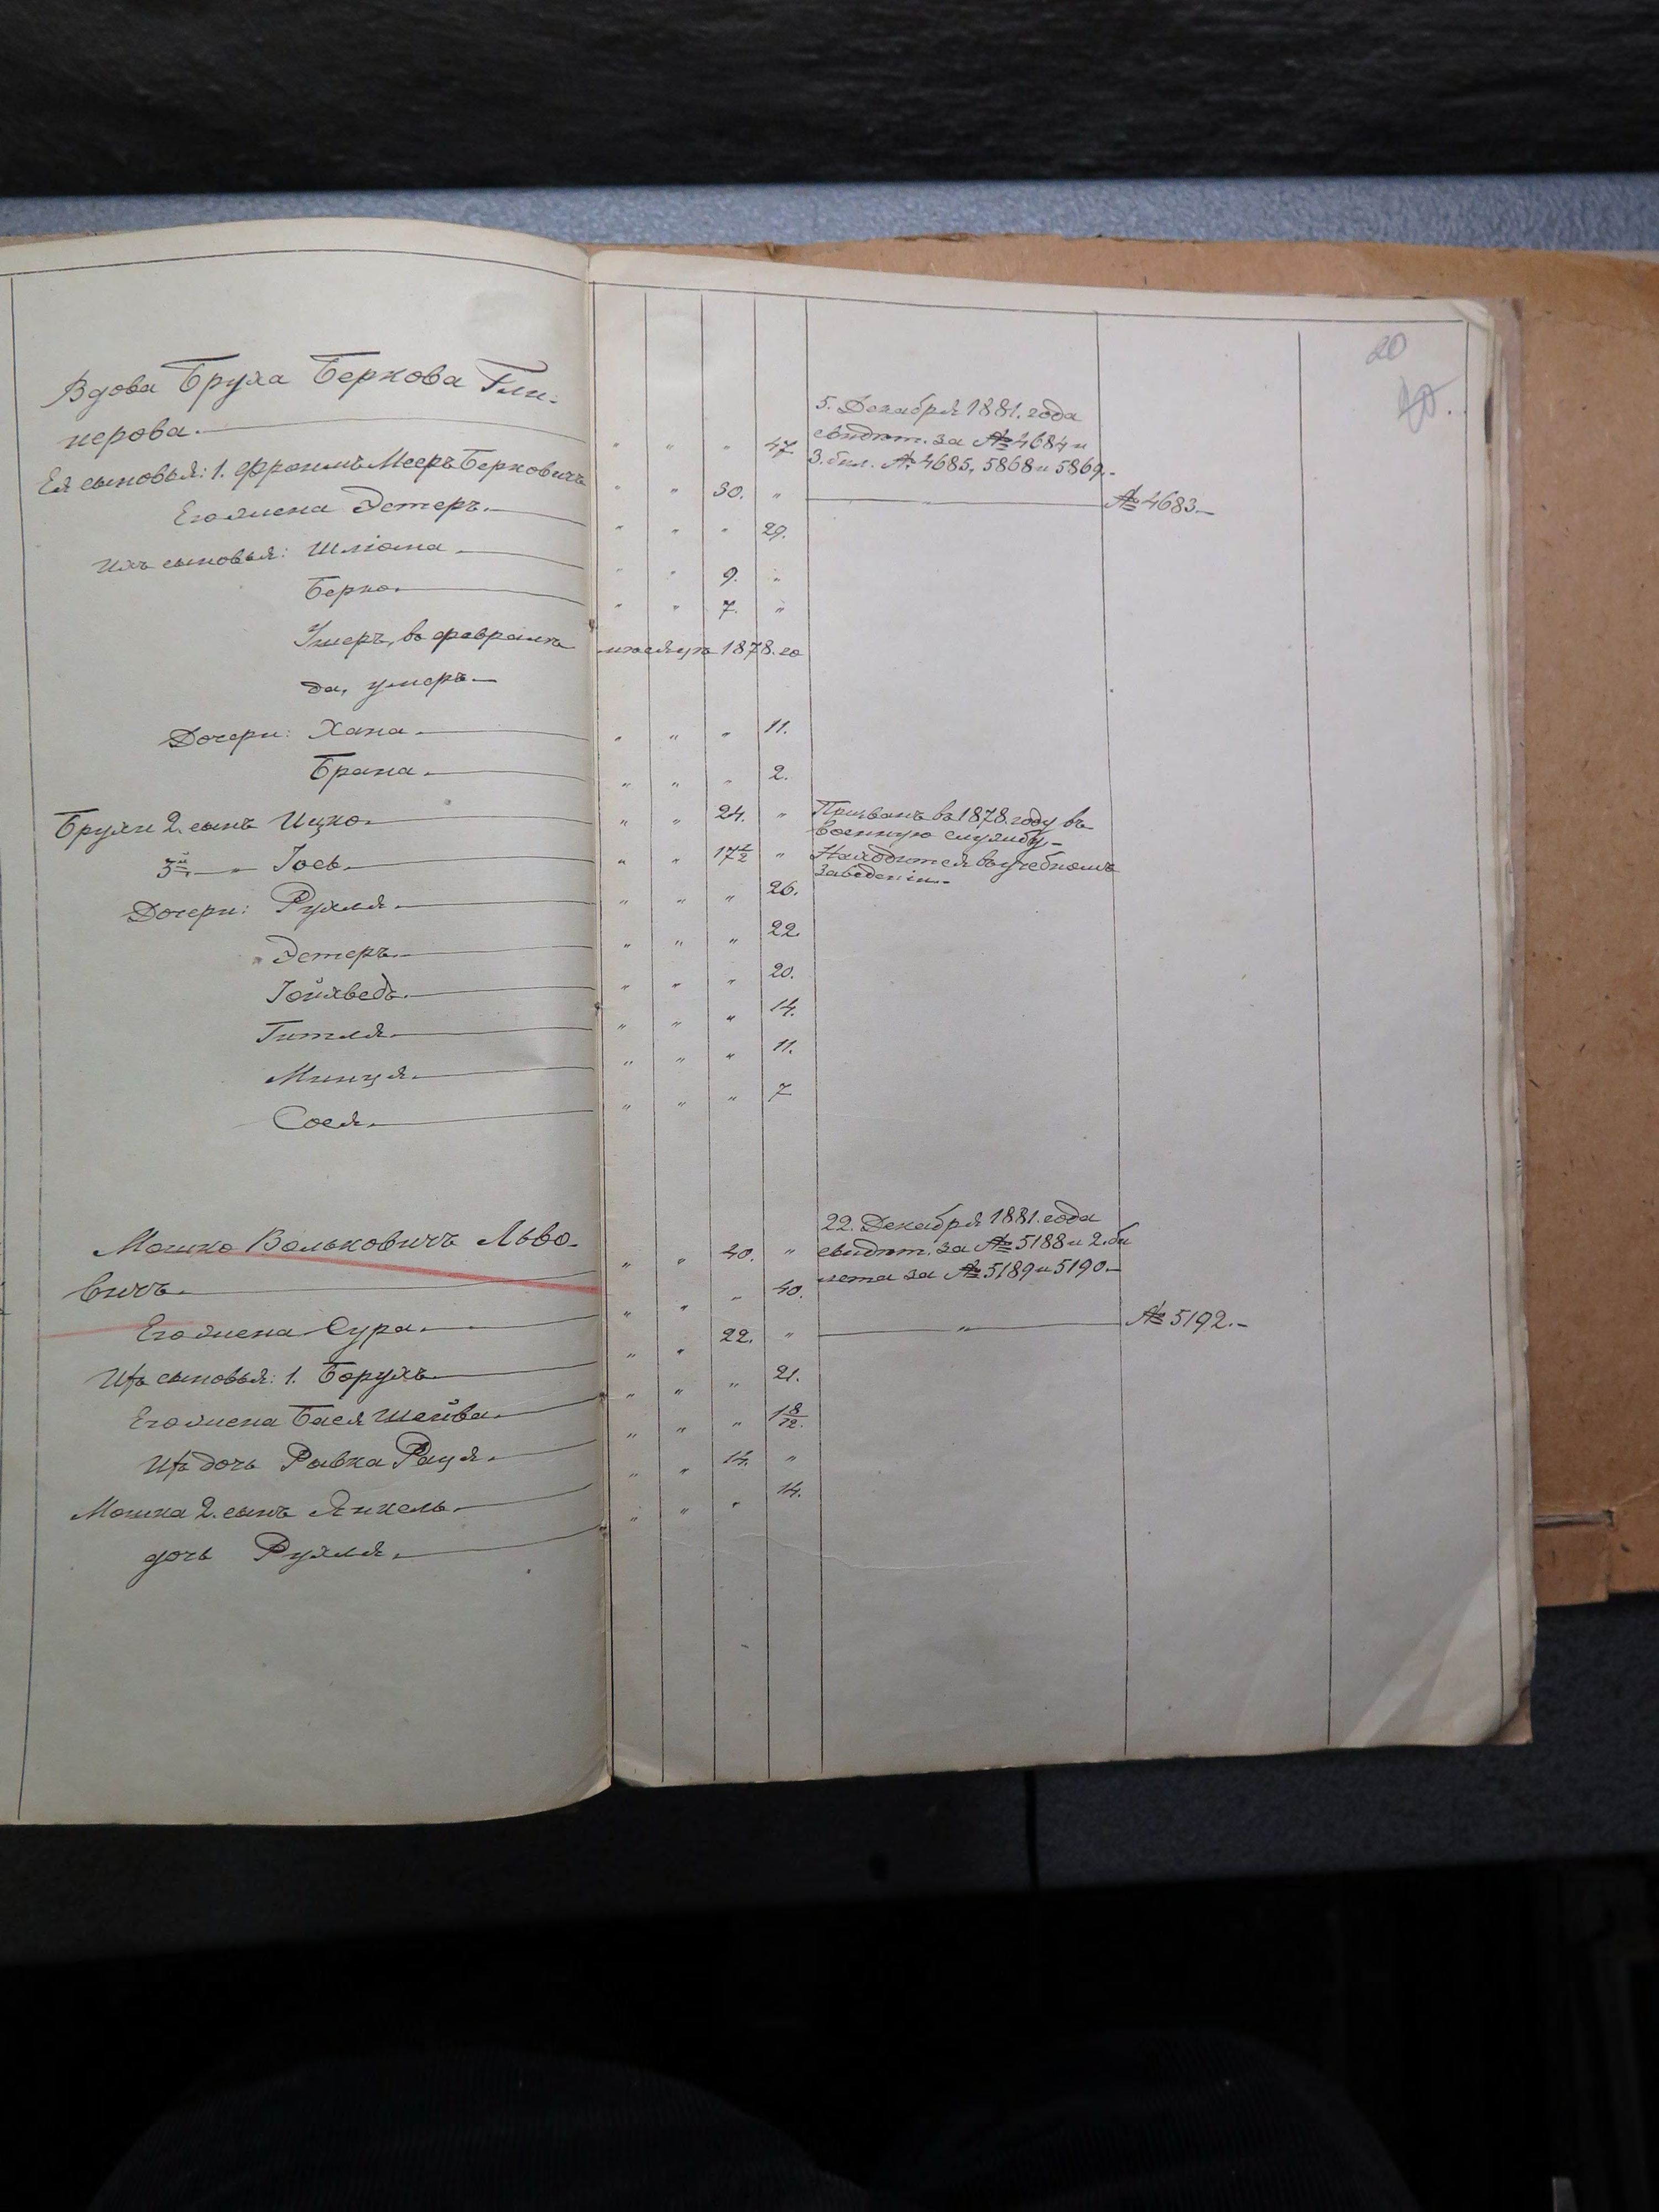 20
Вдова Бруха Беркова Гли-
нерова. " " " 47 5. Декабря 1881. года
свидѣт. за № 4684 и
3. бил. №. 4685, 5868 и 5869.-
Ея сыновья: 1. Фроимъ Мееръ Берковичъ " " 30. " " № 4683.-
Его жена Эстеръ. " " " 29.
Ихъ сыновья: Шлiома " " 9. "
Берко. " " 7. "
въ февралѣ мѣсяцѣ 1878. го
да, умеръ.
Дочери: Хана. " " " 11.
Брана. " " " 2.
Брухи 2. сынъ Ицко. " " 24. " Призванъ въ 1878. году въ
военную службу.-
3й " Iось. " " 17½ " Находится въ учебномъ
заведенiи.-
Дочери: Рухля. " " " 26.
Эстеръ. " " " 22.
Iойхведъ. " " " 20.
Гитля. " " " 14.
Минця. " " " 11.
Сося. " " " 7
Мошко Вольковичъ Льво-
вичъ. " " 40. " 22. Декабря 1881. года
свидѣт. за № 5188 и 2. би
лета за № 5189 и 5190.-
Его жена Сура. " " " 40.
Ихъ сыновья: 1. Борухъ " " 22. " " № 5192.-
Его жена Бася Шейва. " " " 21.
Ихъ дочь Рывка Раця. " " " 1 8/12.
Мошка 2. сынъ Янкель. " " 14. "
дочь Рухля. " " " 14.